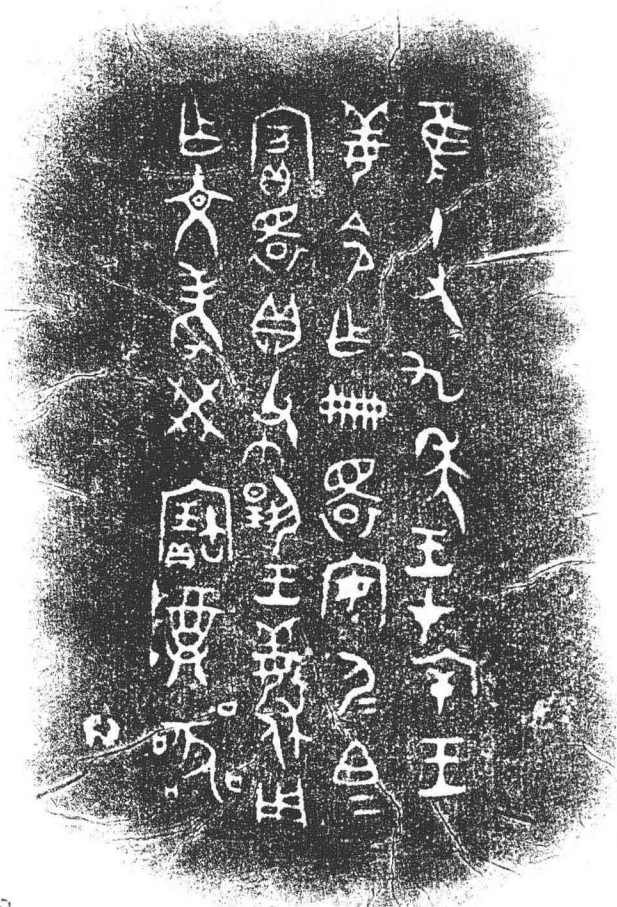 隹十又九年王才斥王
姜令乍冊睘安尸=白=
賓睘貝布揚王姜休用
乍文考癸寶尊器